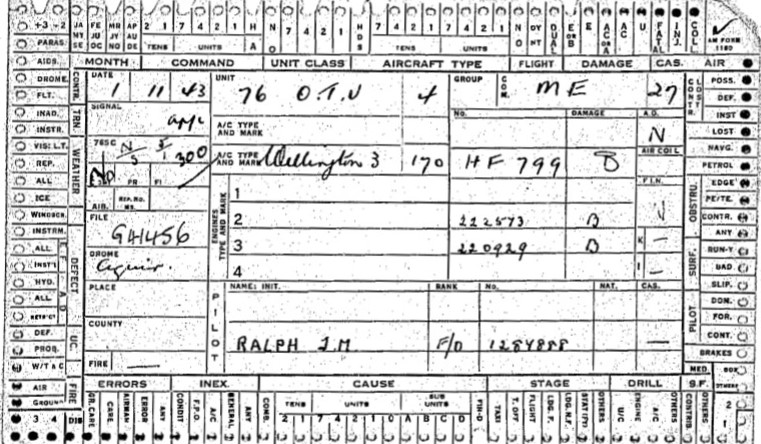 +3 -2 JA MY SE FE JU OC MR JY NO AP AU DE 2 1 7 4 2 1 H A NO 7 4 2 1 7 4 2 1 HDS 7 4 2 1 7 4 2 1 NO DY NT DUAL E or B E AC or A AC U FATAL INJ. COL.
PARAS. TENS UNITS TENS UNITS AM FORM 1180
AIDS. MONTH COMMAND UNIT CLASS AIRCRAFT TYPE FLIGHT DAMAGE CAS. AIR
DROME. CONTR. DATE UNIT GROUP COM. POSS.
FLT. 1 11 43 76 O.T.U 4 ME 27 DEF.
INAD. TRN. SIGNAL No. DAMAGE A.D. INST
INSTR. A/C TYPE AND MARK N LOST
VIS: L.T. WEATHER 765C 300 AIR COIL NAVG.
REP. A/C TYPE AND MARK Wellington 3 170 HF 799 B PETROL
ALL F.I.N. EDGE
ICE AIR. REP. NO. 1 OBSTRU. PE/TE.
WINDSCR. FILE ENGINES TYPE AND MARK 2 222573 B CONTR.
INSTRM. GH456 ANY
ALL DEFECT DROME 3 220929 B K — SURF. RUN-Y
INST'T 4 I — BAD
HYD. PLACE PILOT NAME: INIT. RANK No. NAT. CAS. SLIP.
ALL PILOT DON.
COUNTY FOR.
DEF. UC. RALPH J.M F/O 1284888 — CONT.
PROB. BRAKES
W/T & C FIRE — MED. BOX
AIR FIRE ERRORS INEX. CAUSE STAGE DRILL S.F. OTHERS
GROUND GR. CARE CARE AIRMAN ERROR ANY CONDIT F.P.O A/C GENERAL ANY COMB TENS UNITS SUB UNITS TAXI T. OFF FLIGHT LDG. F. LDG. N.F. STAT (FY) OTHERS U/C ENGINE A/C OTHERS CONTRIB. OTHERS 2
3 4 DIS 2 1 7 4 2 1 0 A B C D 1